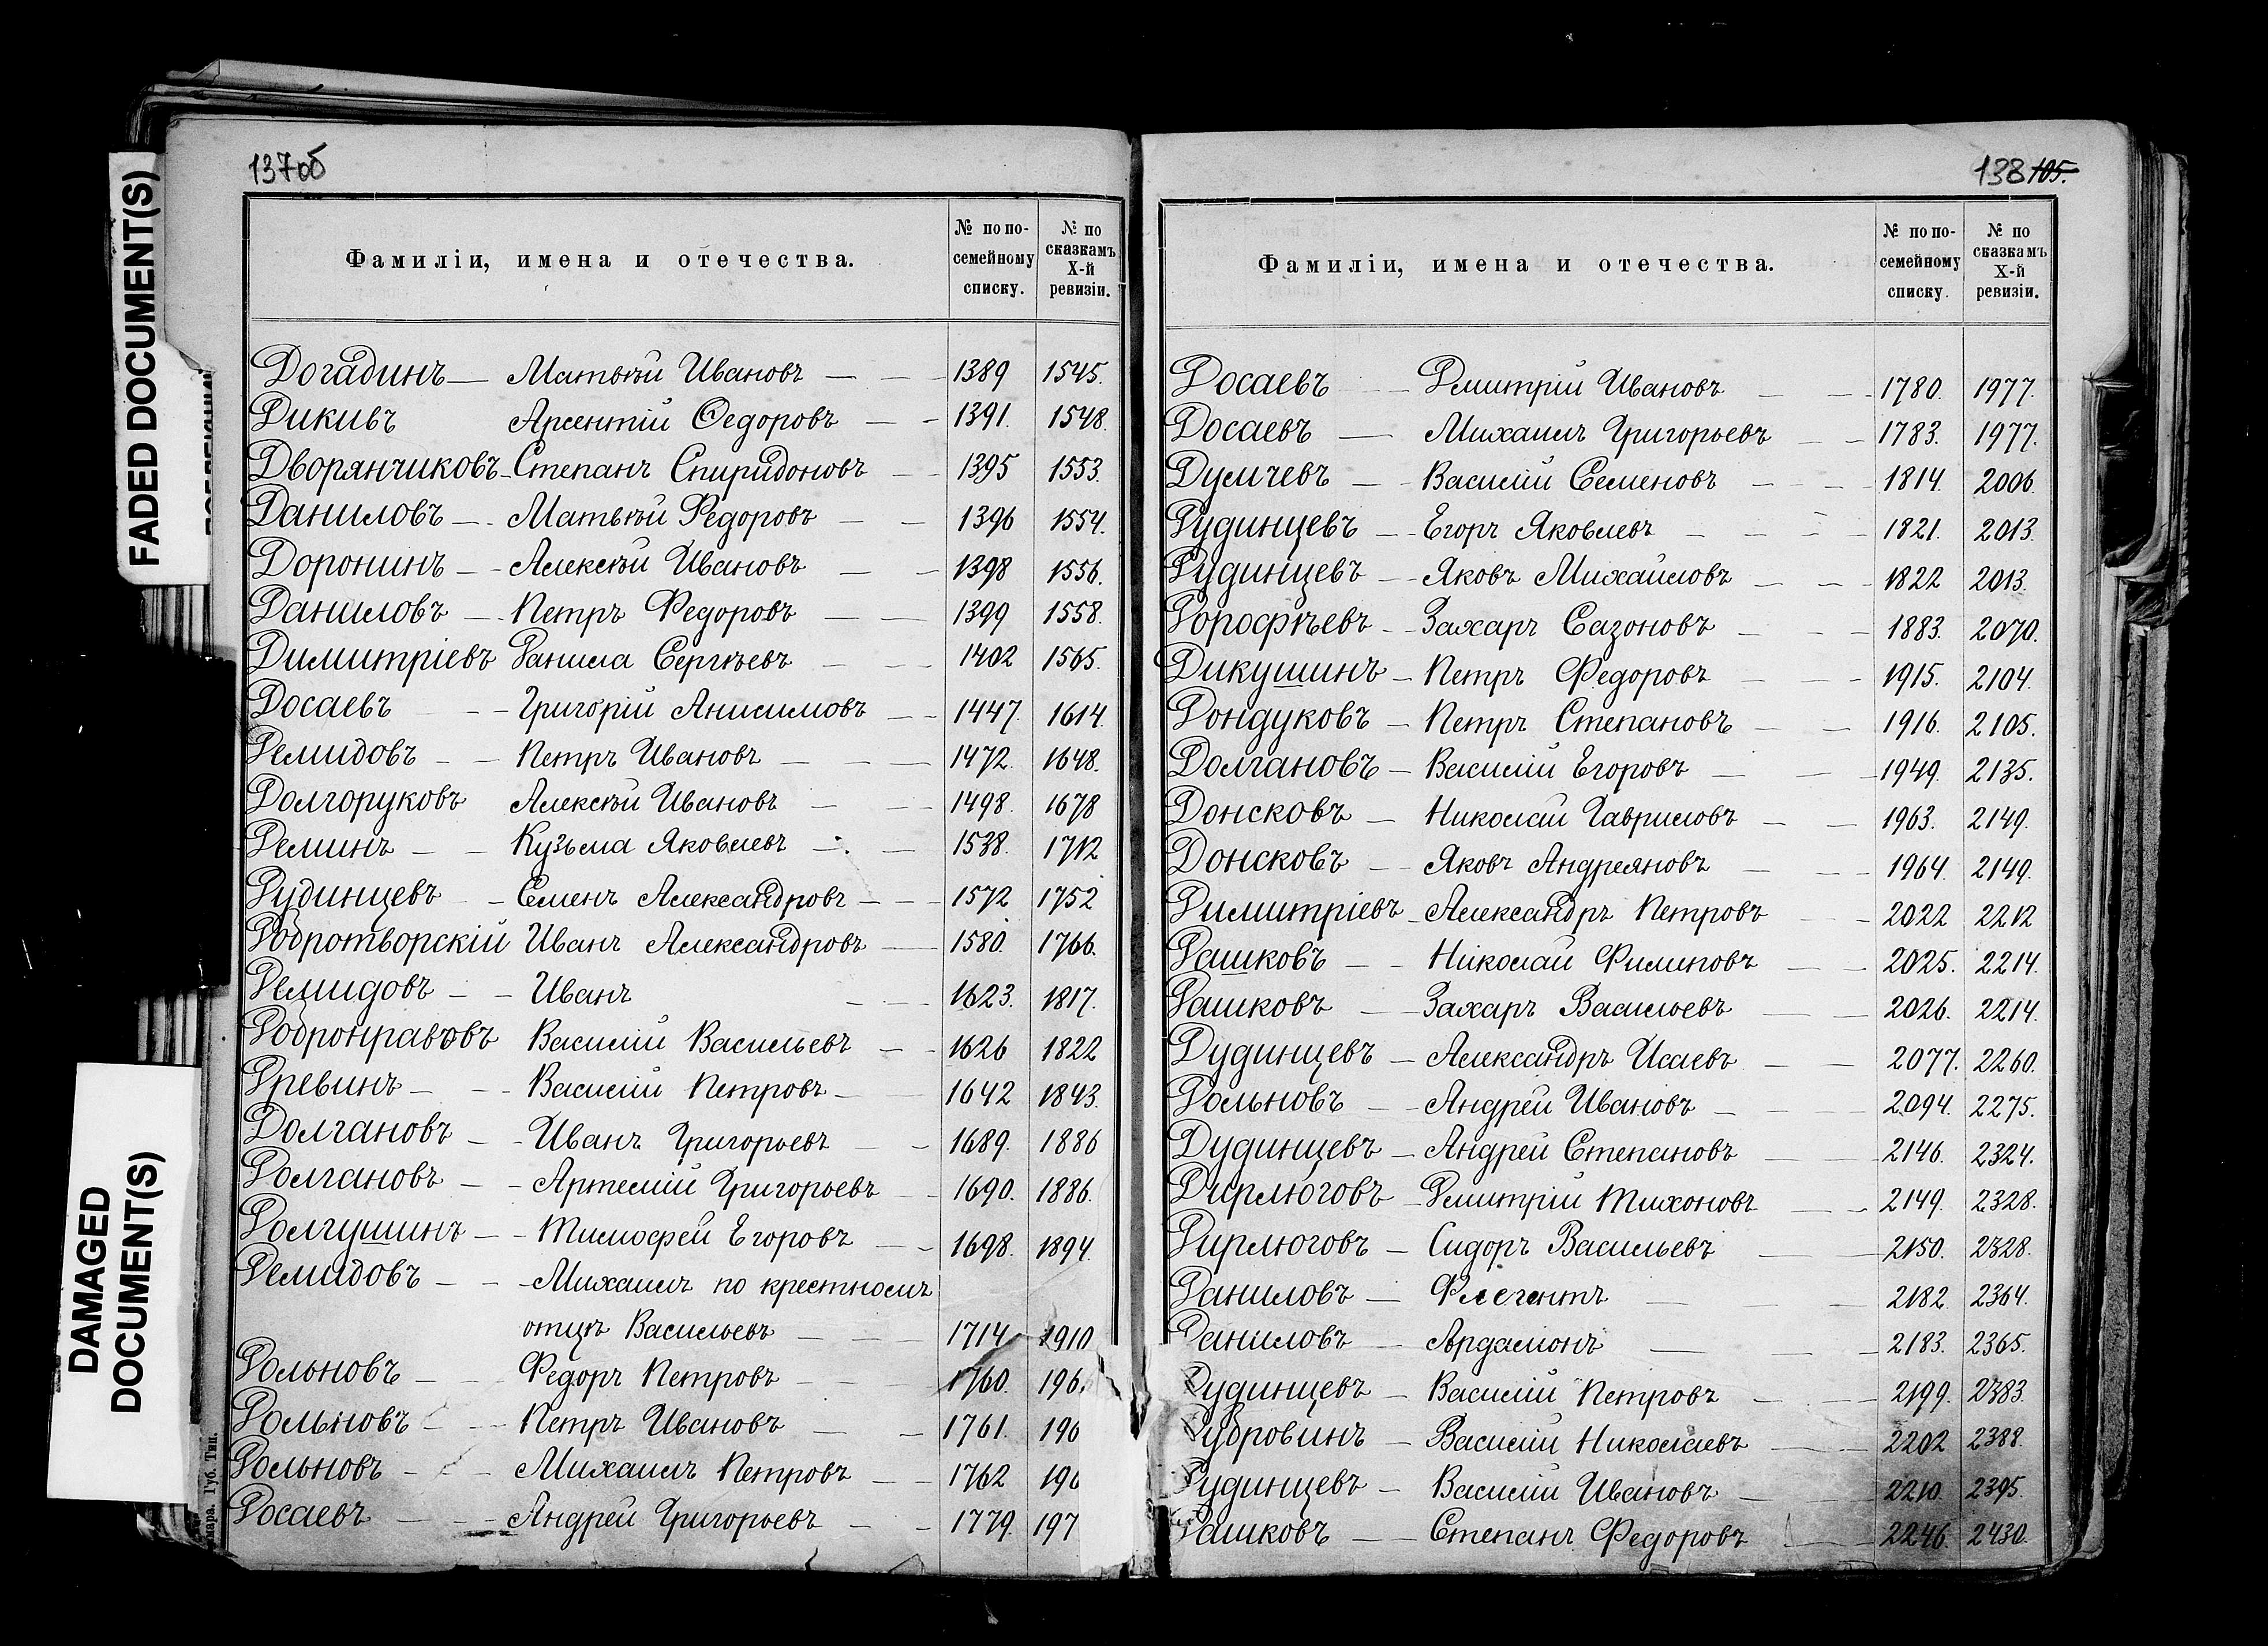 FADED DOCUMENT(S)
DAMAGED
DOCUMENT(S)
137об
Фамиліи, имена и отечества.
№ по по-
семейному
списку.
№ по
сказкамъ
X-й
ревизіи.
Догадинъ — Матвѣй Ивановъ — 1389 1545.
Дикивъ Арсентій Ѳедоровъ — 1391. 1548.
Дворянчиковъ - Степанъ Спиридоновъ — 1395 1553.
Даниловъ — Матвѣй Федоровъ — 1396 1554.
Доронинъ — Алексѣй Ивановъ — 1398 1556.
Даниловъ — Петръ Федоровъ — 1399 1558.
Димитріевъ Данила Сергѣевъ — 1402 1565.
Досаевъ — Григорій Анисимовъ — 1447. 1614.
Демидовъ — Петръ Ивановъ — 1472. 1648.
Долгоруковъ Алексѣй Ивановъ — 1498. 1678
Деминъ — Кузьма Яковлевъ — 1538. 1712
Дудинцевъ — Семенъ Александровъ — 1572 1752
Добротворскій Иванъ Александровъ — 1580. 1766.
Демидовъ — Иванъ — 1623. 1817.
Добронравовъ Василій Васильевъ — 1626 1822
Древинъ — Василій Петровъ — 1642 1843.
Долгановъ — Иванъ Григорьевъ — 1689. 1886
Долгановъ — Артемій Григорьевъ — 1690. 1886.
Долгушинъ — Тимофей Егоровъ — 1698. 1894.
Демидовъ — Михаилъ по крестномъ
отцѣ Васильевъ — 1714 1910
Дольновъ — Федоръ Петровъ — 1760. 196
Дольновъ — Петръ Ивановъ — 1761. 196
Дольновъ — Михаилъ Петровъ — 1762 196
Досаевъ — Андрей Григорьевъ — 1779. 197
138 105.
Фамиліи, имена и отечества.
№ по по-
семейному
списку.
№ по
сказкамъ
X-й
ревизіи.
Досаевъ — Дмитрій Ивановъ — 1780. 1977.
Досаевъ — Михаилъ Григорьевъ — 1783. 1977.
Думчевъ — Василій Семеновъ — 1814. 2006.
Дудинцевъ — Егоръ Яковлевъ — 1821. 2013.
Дудинцевъ — Яковъ Михайловъ — 1822 2013.
Дорофѣевъ — Захаръ Сазоновъ — 1883. 2070.
Дикушинъ — Петръ Федоровъ — 1915. 2104.
Дондуковъ — Петръ Степановъ — 1916. 2105.
Долгановъ — Василій Егоровъ — 1949. 2135.
Донсковъ — Николай Гавриловъ — 1963. 2149.
Донсковъ — Яковъ Андреяновъ — 1964. 2149.
Димитріевъ - Александръ Петровъ — 2022 2212
Дашковъ — Николай Филиповъ — 2025. 2214.
Дашковъ — Захаръ Васильевъ — 2026. 2214.
Дудинцевъ — Александръ Исаевъ — 2077. 2260.
Дольновъ — Андрей Ивановъ — 2094. 2275.
Дудинцевъ — Андрей Степановъ — 2146. 2324.
Дирлюговъ — Дмитрій Тихоновъ — 2149. 2328.
Дирлюговъ — Сидоръ Васильевъ — 2150. 2328.
Даниловъ — Флегентъ — 2182. 2364.
Даниловъ — Ардаліонъ — 2183. 2365.
Дудинцевъ — Василій Петровъ — 2199. 2383.
Дубровинъ — Василій Николаевъ — 2202 2388.
Дудинцевъ — Василій Ивановъ — 2210. 2395.
Дашковъ — Степанъ Федоровъ — 2246. 2430.
Губ. Тип.